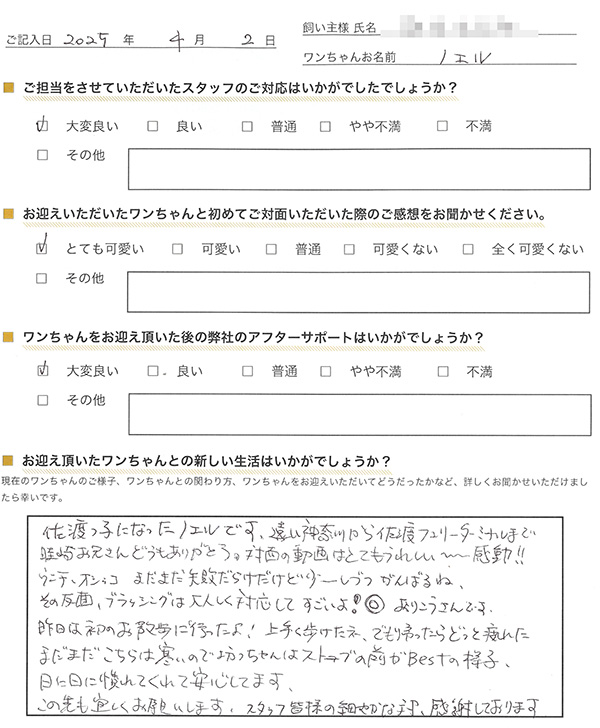 ご記入日 2025 年 4 月 2 日
飼い主様 氏名
ワンちゃんお名前 ノエル
■ ご担当をさせていただいたスタッフのご対応はいかがでしたでしょうか?
☑ 大変良い □ 良い □ 普通 □ やや不満 □ 不満
□ その他
■ お迎えいただいたワンちゃんと初めてご対面いただいた際のご感想をお聞かせください。
☑ とても可愛い □ 可愛い □ 普通 □ 可愛くない □ 全く可愛くない
□ その他
■ ワンちゃんをお迎え頂いた後の弊社のアフターサポートはいかがでしょうか?
☑ 大変良い □ 良い □ 普通 □ やや不満 □ 不満
□ その他
■ お迎え頂いたワンちゃんとの新しい生活はいかがでしょうか?
現在のワンちゃんのご様子、ワンちゃんとの関わり方、ワンちゃんをお迎えいただいてどうだったかなど、詳しくお聞かせいただけまし
たら幸いです。
佐渡っ子になったノエルです、遠い神奈川から佐渡フェリーターミナルまで
お兄さんどうもありがとう。対面の動画はとてもうれしい〜〜感動!!
ウンチ、オシッコ まだまだ失敗だらけだけど少ーしづつ がんばるね、
その反面、ブラッシングは大人しく対応して すごいよ!◎ おりこうさんです。
昨日は初のお散歩に行ったよ! 上手く歩けたネ、でもり帰ったらどっと疲れた
まだまだこちらは寒いので坊っちゃんはストーブの前がBestの様子、
日に日に慣れてくれて安心してます、
この先も宜しくお願いします、スタッフ皆様の細やかな対、感謝しております